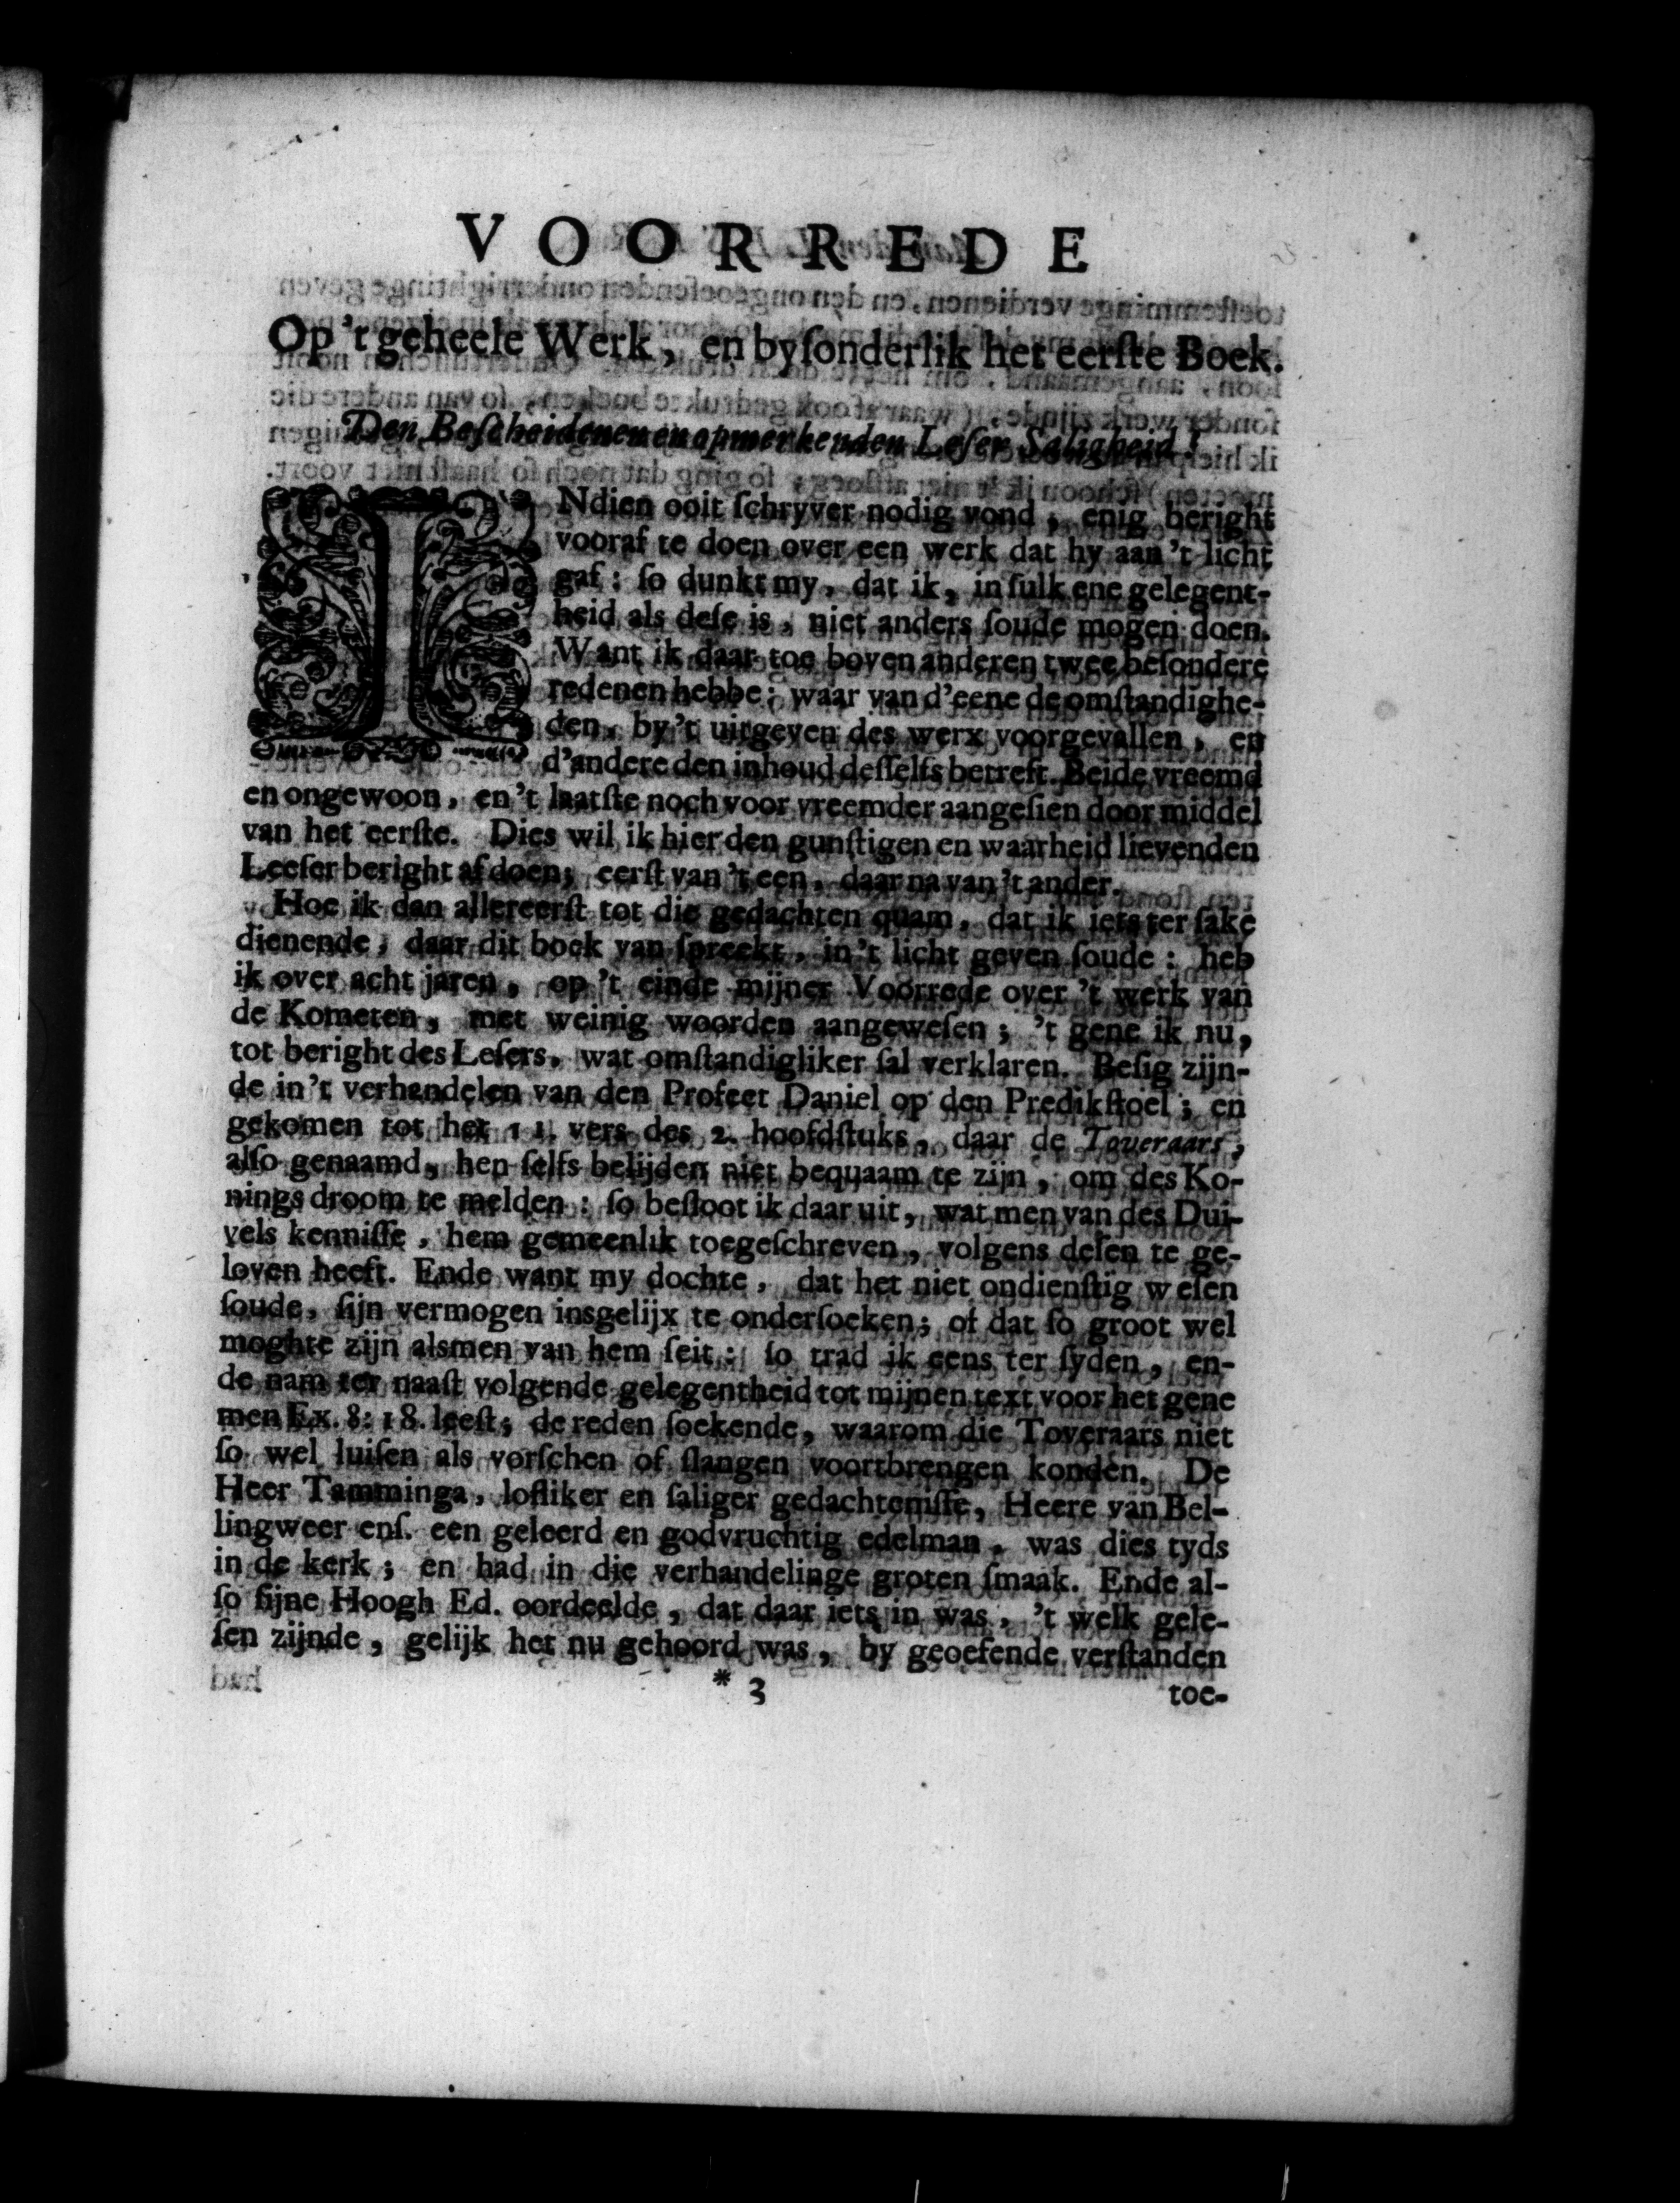 VOORREDE
Op 't geheele Werk, en byſonderlik het eerſte Boek.
Den Beſcheidenen en opmerkenden Leſer Saligheid!
INdien ooit ſchryver nodig vond, enig beright
vooraf te doen over een werk dat hy aan 't licht
gaf: ſo dunkt my, dat ik, in ſulk ene gelegent-
heid als deſe is, niet anders ſoude mogen doen.
Want ik daar toe boven anderen twee beſondere
redenen hebbe; waar van d'eene de omſtandighe-
den, by 't uitgeven des werx voorgevallen, en
d'andere den inhoud deſſelfs betreft. Beide vreemd
en ongewoon, en 't laatſte noch voor vreemder aangeſien door middel
van het eerſte. Dies wil ik hier den gunſtigen en waarheid lievenden
Leeſer beright af doen; eerſt van 't een, daar na van 't ander.
Hoe ik dan allereerſt tot die gedachten quam, dat ik iets ter ſake
dienende, daar dit boek van ſpreekt, in 't licht geven ſoude: heb
ik over acht jaren, op 't einde mijner Voorrede over 't werk van
de Kometen, met weinig woorden aangeweſen; 't gene ik nu,
tot beright des Leſers, wat omſtandigliker ſal verklaren. Beſig zijn-
de in 't verhandelen van den Profeet Daniel op den Predikſtoel; en
gekomen tot het 11. vers des 2. hoofdſtuks, daar de Toveraars,
alſo genaamd, hen ſelfs belijden niet bequaam te zijn, om des Ko-
nings droom te melden: ſo beſloot ik daar uit, wat men van des Dui-
vels kenniſſe, hem gemeenlik toegeſchreven, volgens deſen te ge-
loven heeft. Ende want my dochte, dat het niet ondienſtig weſen
ſoude, ſijn vermogen insgelijx te onderſoeken; of dat ſo groot wel
moghte zijn alsmen van hem ſeit: ſo trad ik eens ter ſyden, en-
de nam ter naaſt volgende gelegentheid tot mijnen text voor het gene
men Ex. 8: 18. leeſt; de reden ſoekende, waarom die Toveraars niet
ſo wel luiſen als vorſchen of ſlangen voortbrengen konden. De
Heer Tamminga, lofliker en ſaliger gedachteniſſe, Heere van Bel-
lingweer enſ. een geleerd en godvruchtig edelman, was dies tyds
in de kerk; en had in die verhandelinge groten ſmaak. Ende al-
ſo ſijne Hoogh Ed. oordeelde, dat daar iets in was, 't welk gele-
ſen zijnde, gelijk het nu gehoord was, by geoefende verſtanden
* 3 toe-